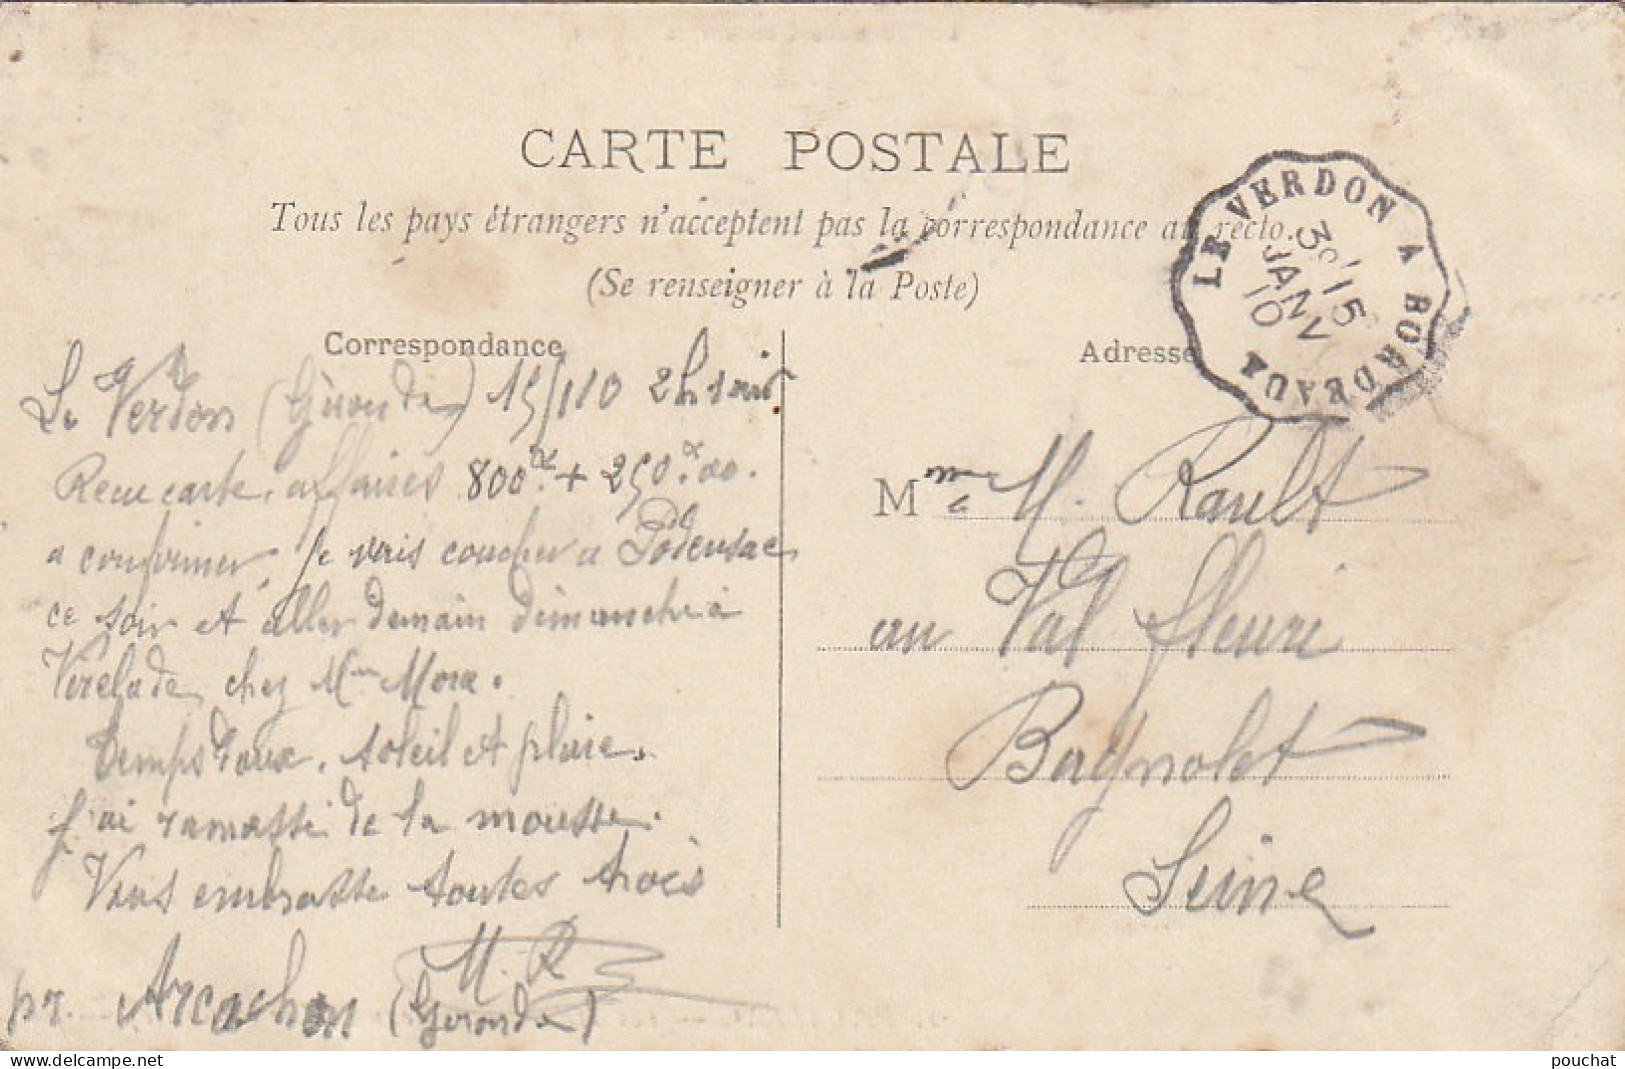 CARTE POSTALE
Tous les pays étrangers n'acceptent pas la correspondance au recto.
(Se renseigner à la Poste)
LE VERDON A BORDEAUX
3º 15
JANV
10
Correspondance
Adresse
Le Verdon (Gironde) 15/1/10 2h soir
Reçu carte, affaires 800 + 250.
a confirmer, je vais coucher a Podensac
ce soir et aller demain dimanche à
Virelade chez Mme Mora.
Temps doux, soleil et pluie,
j'ai ramassé de la mousse.
Vous embrasse toutes trois
M. R
pr. Arcachon (Gironde)
Mme M. Rault
au Val fleuri
Bagnolet
Seine
www.delcampe.net
pouchat